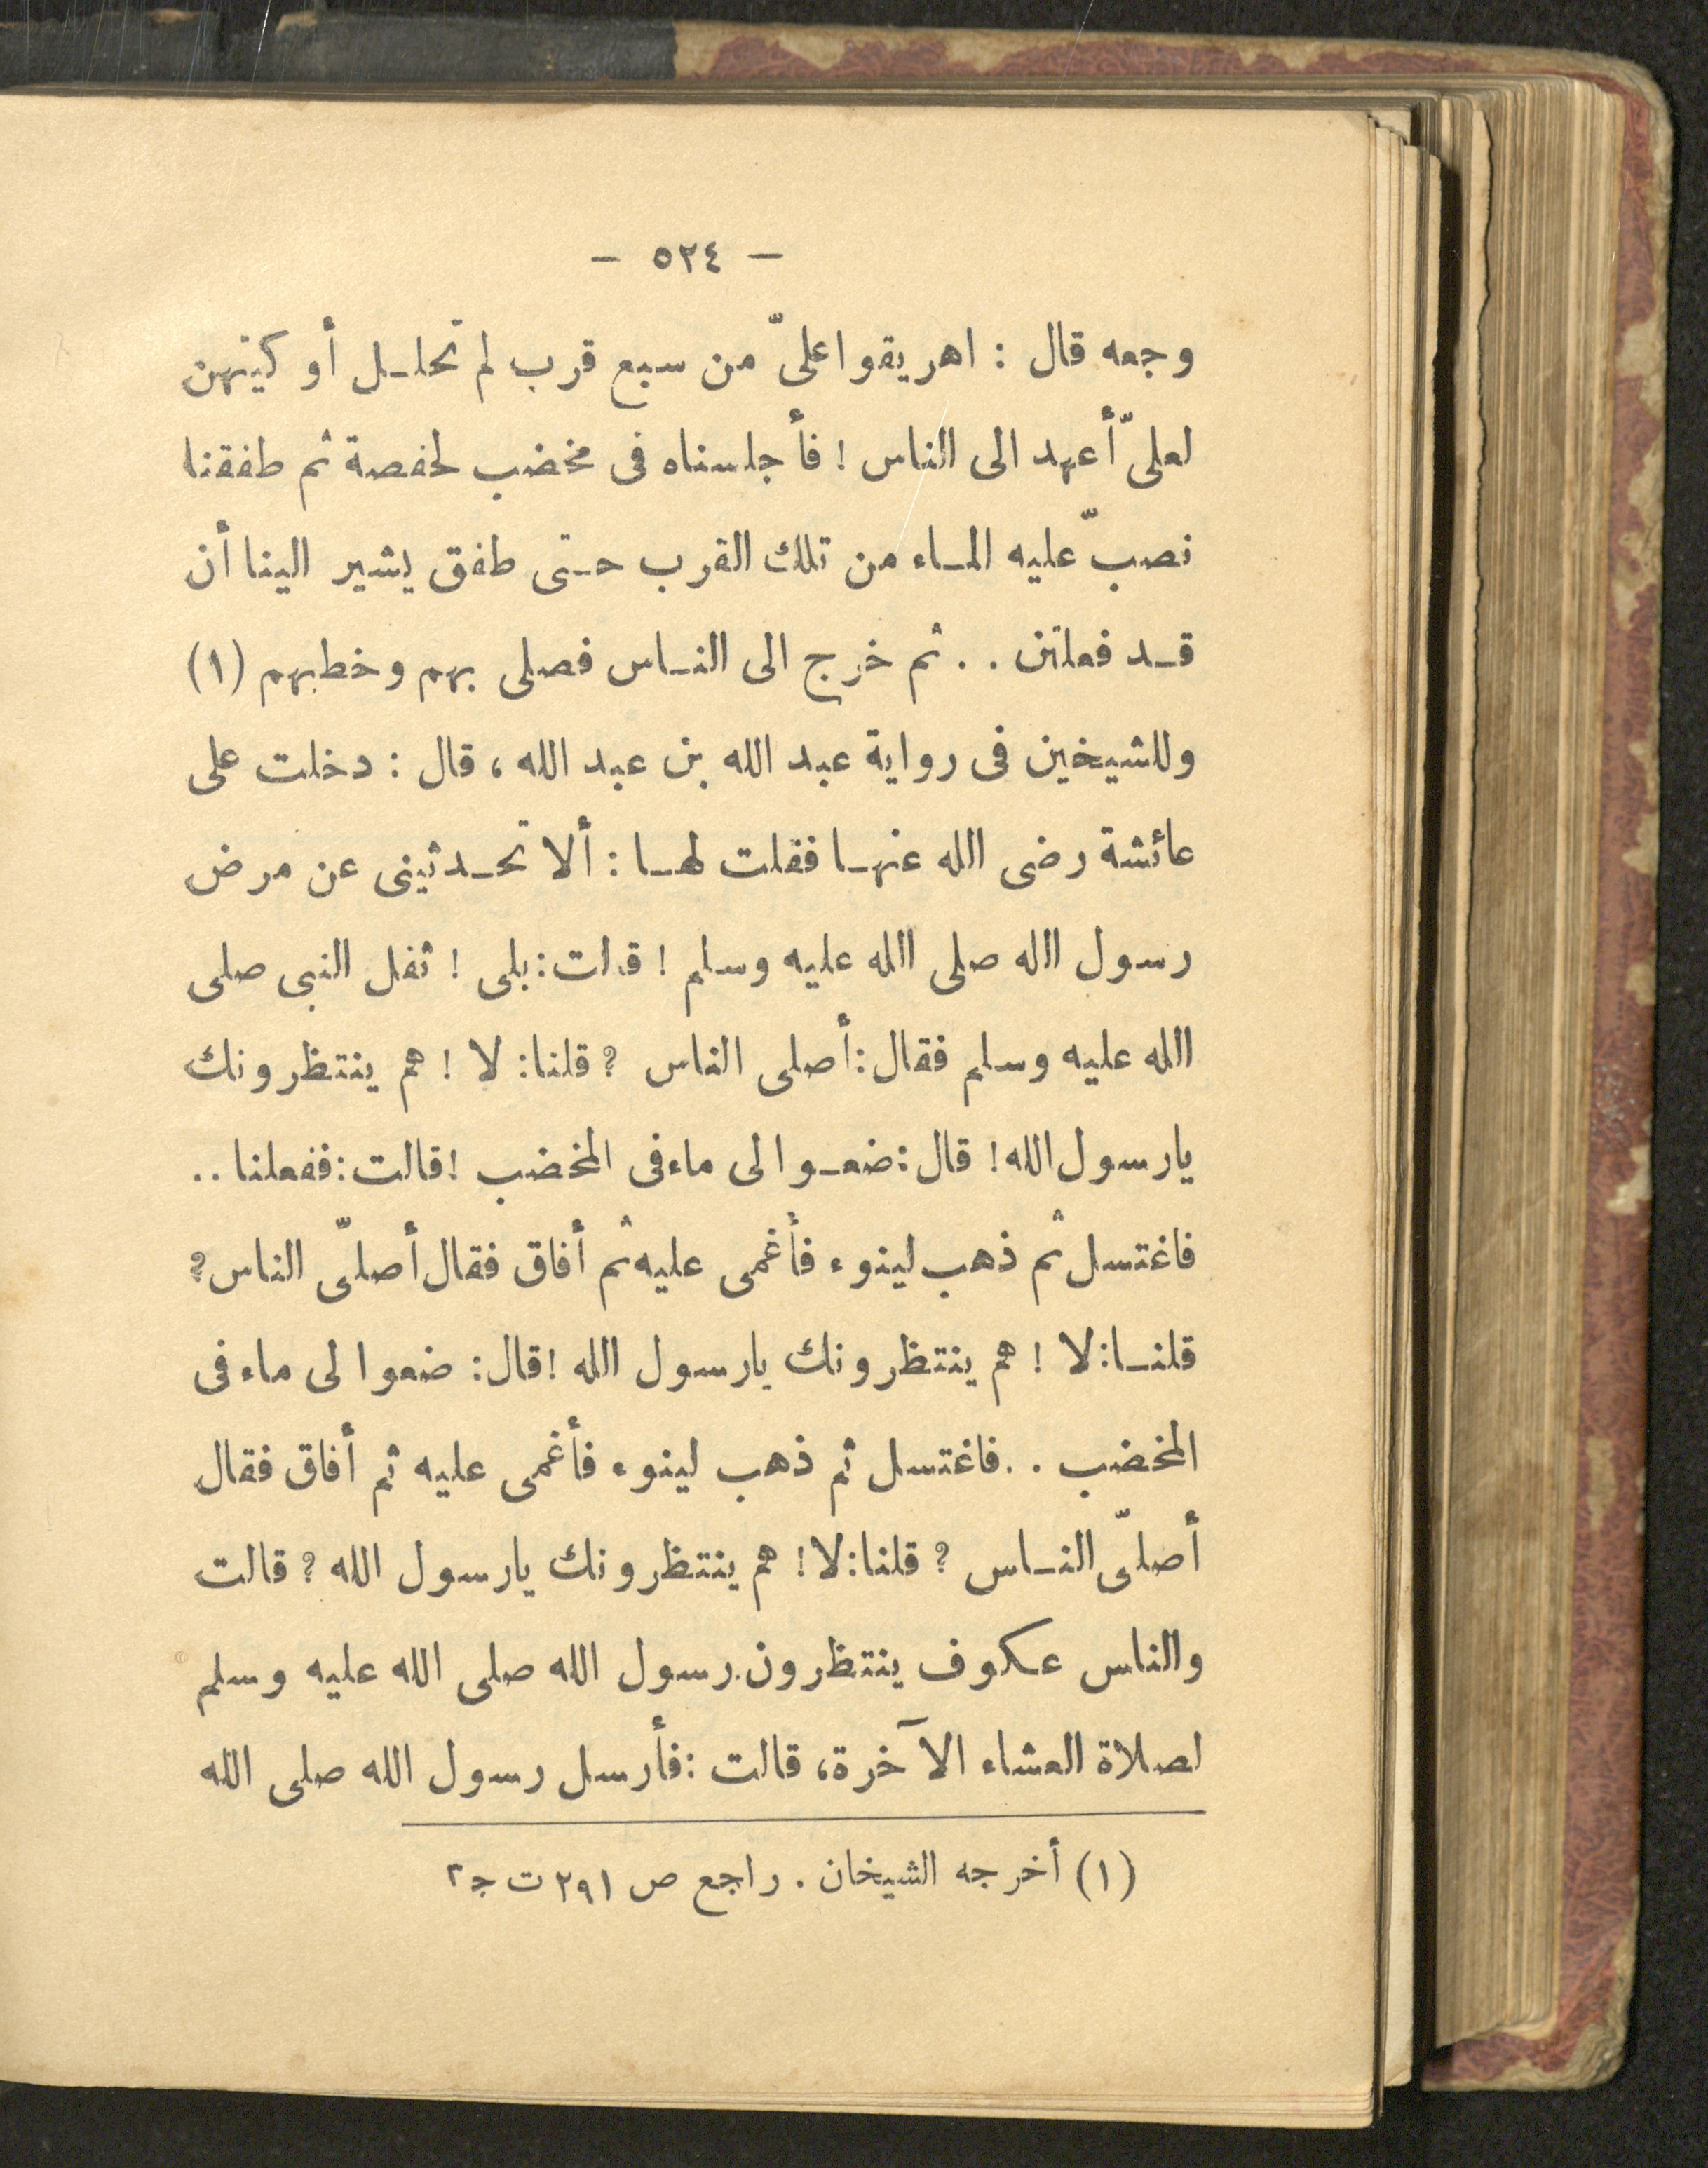 — ٥٢٤ —
وجعه قال : اهريقوا علىّ من سبع قرب لم تحلـل أوكيتهن
لعلىّ أعهد الى الناس ! فأجلسناه فى مخضب لحفصة ثم طفقنا
نصبّ عليه المـاء من تلك القرب حـتى طفق يشير الينا أن
قـد فعلتن . . ثم خرج الى النـاس فصلى بهم وخطبهم (١)
وللشيخين فى رواية عبد الله بن عبد الله ، قال : دخلت على
عائشة رضى الله عنهـا فقلت لهـا : ألا تحـدثينى عن مرض
رسول الله صلى الله عليه وسلم ! قالت : بلى ! ثقل النبى صلى
الله عليه وسلم فقال : أصلى الناس ؟ قلنا : لا ! هم ينتظرونك
يارسول الله ! قال : ضعـوا لى ماء فى المخضب ! قالت : ففعلنا . .
فاغتسل ثم ذهب لينوء فأغمى عليه ثم أفاق فقال أصلّى الناس ؟
قلنـا : لا ! هم ينتظرونك يارسول الله ! قال : ضعوا لى ماء فى
المخضب . . فاغتسل ثم ذهب لينوء فأغمى عليه ثم أفاق فقال
أصلّى النـاس ؟ قلنا : لا ! هم ينتظرونك يارسول الله ؟ قالت
والناس عكوف ينتظرون رسول الله صلى الله عليه وسلم
لصلاة العشاء الآخرة ، قالت : فأرسل رسول الله صلى الله
(١) أخرجه الشيخان . راجع ص ٢٩١ ت ج ٢